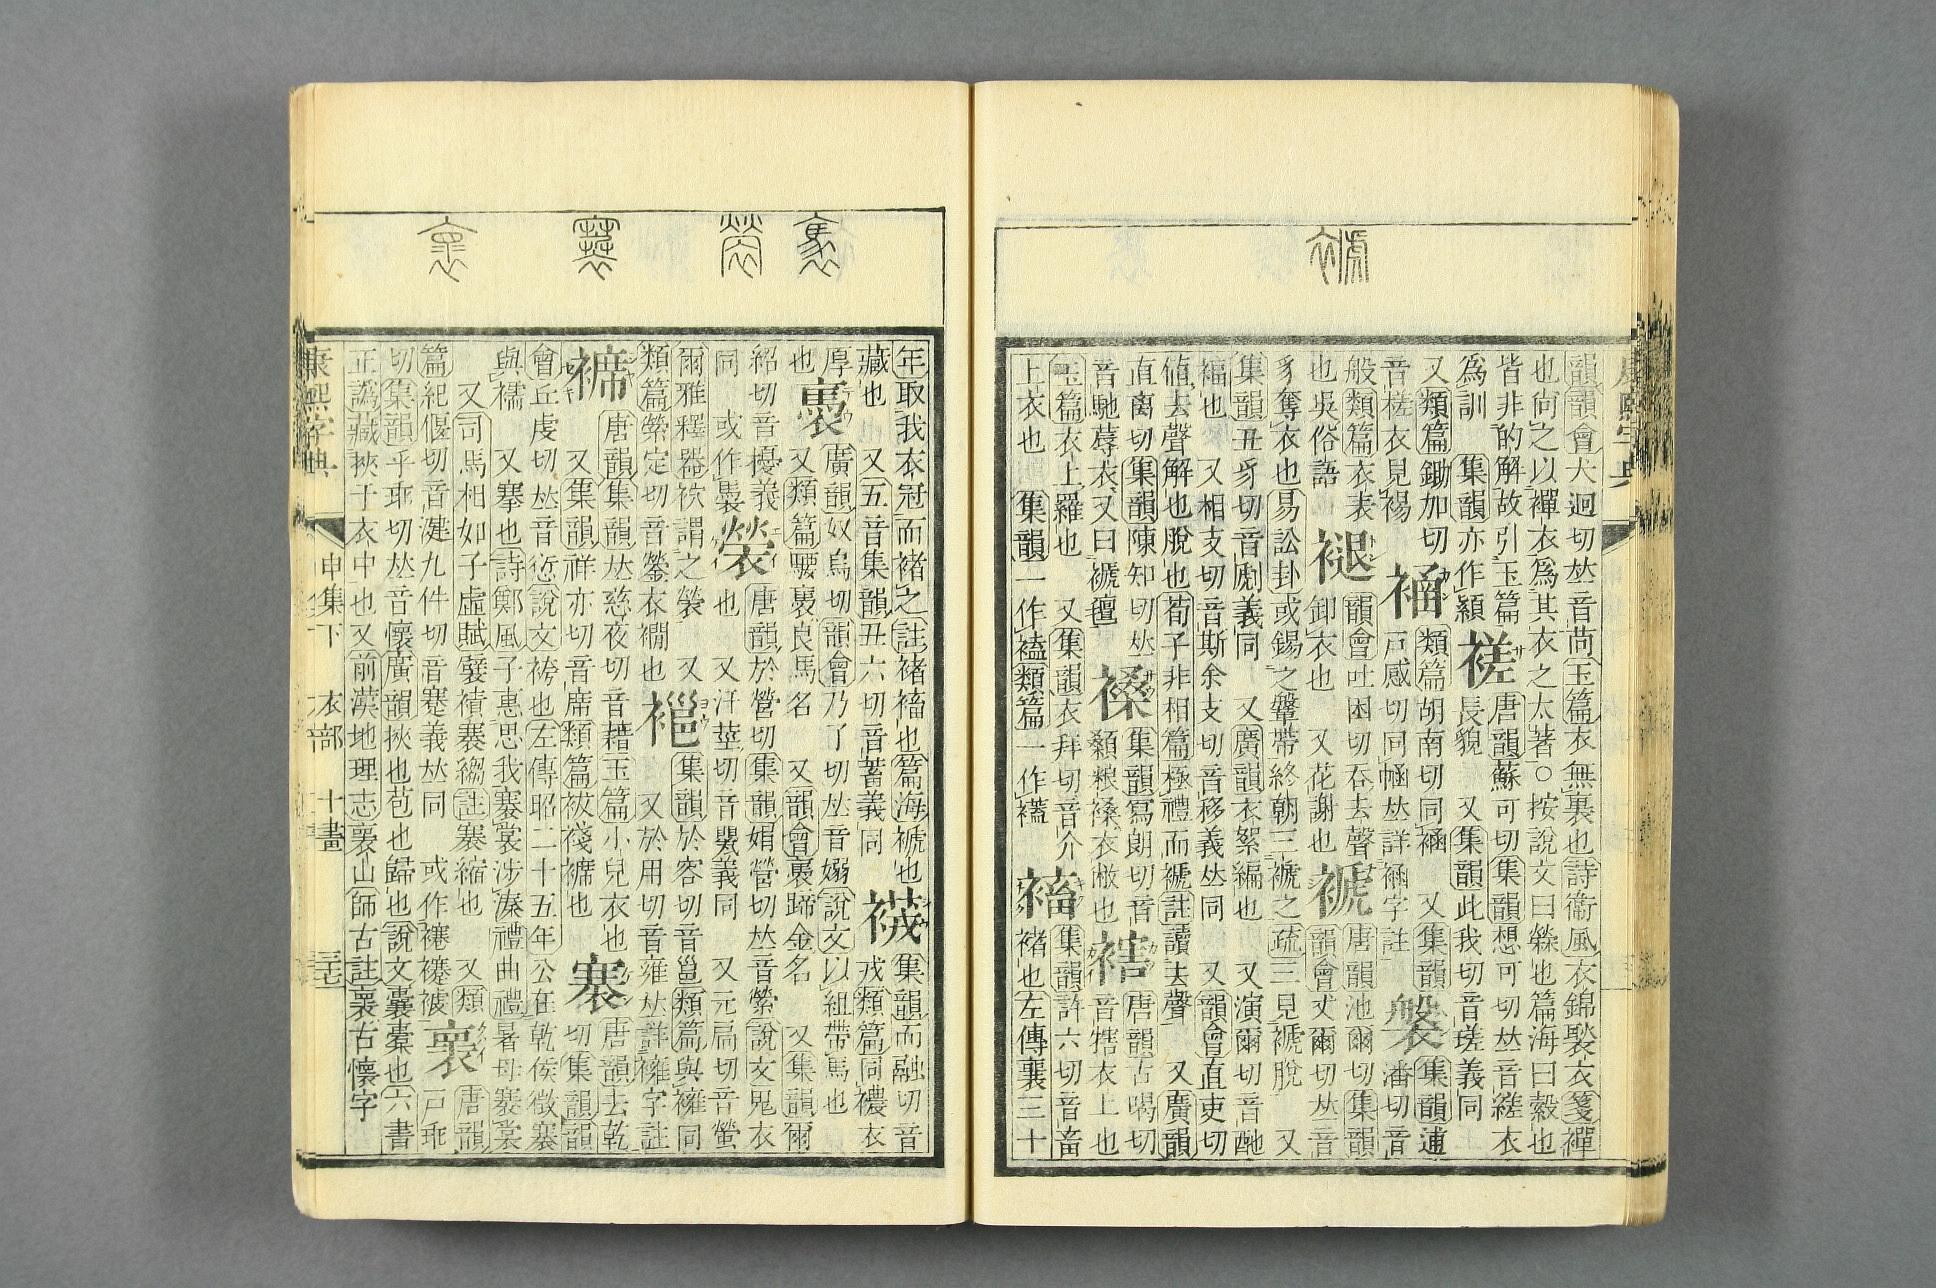 韻韻會犬迥切𠀤音苘玉篇衣無裏也詩衞風衣錦褧衣箋襌
也尙之以襌衣爲其衣之太著○按說文曰檾也篇海曰縠也
皆非的解故引玉篇
爲訓 集韻亦作穎 褨 唐韻蘇可切集韻想可切𠀤音縒衣
長貌 又集韻此我切音瑳義同
又類篇鋤加切
音槎衣見裼 𧛕 類篇胡南切同𧙹 又集韻
戸感切同𢂷𠀤詳𧙹字註 褩 集韻逋
潘切音
般類篇衣表
也吳俗語 褪 韻會吐困切吞去聲
卸衣也 又花謝也 褫 唐韻池爾切集韻
韻會丈爾切𠀤音
豸奪衣也易訟卦或錫之鞶帶終朝三褫之疏三見褫脫 又
集韻丑豸切音㔭義同 又廣韻衣絮編也 又演爾切音酏
褔也 又相支切音斯余支切音移義𠀤同 又韻會直吏切
値去聲解也脫也荀子非相篇極禮而褫註讀去聲 又廣韻
直离切集韻陳知切𠀤
音馳蓐衣又曰褫氊 褬 集韻寫朗切音
顙粮褬衣敝也 𧛾 唐韻古喝切
音犗衣上也
玉篇衣上羅也 又集韻衣拜切音介
上衣也 集韻一作𧝋類篇一作𧝶 蓄 集韻許六切音畜
褚也左傳襄三十
年取我衣冠而褚之註褚稸也篇海褫也
藏也 又五音集韻丑六切音蓄義同 𧛡 集韻而融切音
戎類篇同襛衣
厚
也 褭 廣韻奴鳥切韻會乃了切𠀤音嫋說文以組帶馬也
又類篇騕褭良馬名 又韻會褭蹄金名 又集韻爾
紹切音擾義
同 或作㒟 褮 唐韻於營切集韻娟營切𠀤音縈說文鬼衣
也 又汙莖切音甖義同 又元扃切音螢
爾雅釋器袕謂之褮 又
類篇縈定切音鎣衣襉也 𧛹 集韻於容切音邕類篇與襱同
又於用切音雍𠀤詳襱字註
𧜁 唐韻集韻𠀤慈夜切音藉玉篇小兒衣也
又集韻祥亦切音席類篇袚襊𧜁也 褰 唐韻去乾
切集韻韻
會丘虔切𠀤音愆說文袴也左傳昭二十五年公在乾侯徵褰
與襦 又搴也詩鄭風子惠思我褰裳涉溱禮曲禮暑毋褰裳
又司馬相如子虛賦襞𧝁褰縐註褰縮也 又類
篇紀偃切音湕九件切音蹇義𠀤同 或作襸𧞫𧛟 褱 唐韻
戸乖
切集韻乎乖切𠀤音懷廣韻挾也苞也歸也說文囊橐也六書
正譌藏挾于衣中也又前漢地理志褱山師古註褱古懷字
康熙字典 申集下 衣部 十畫 三七